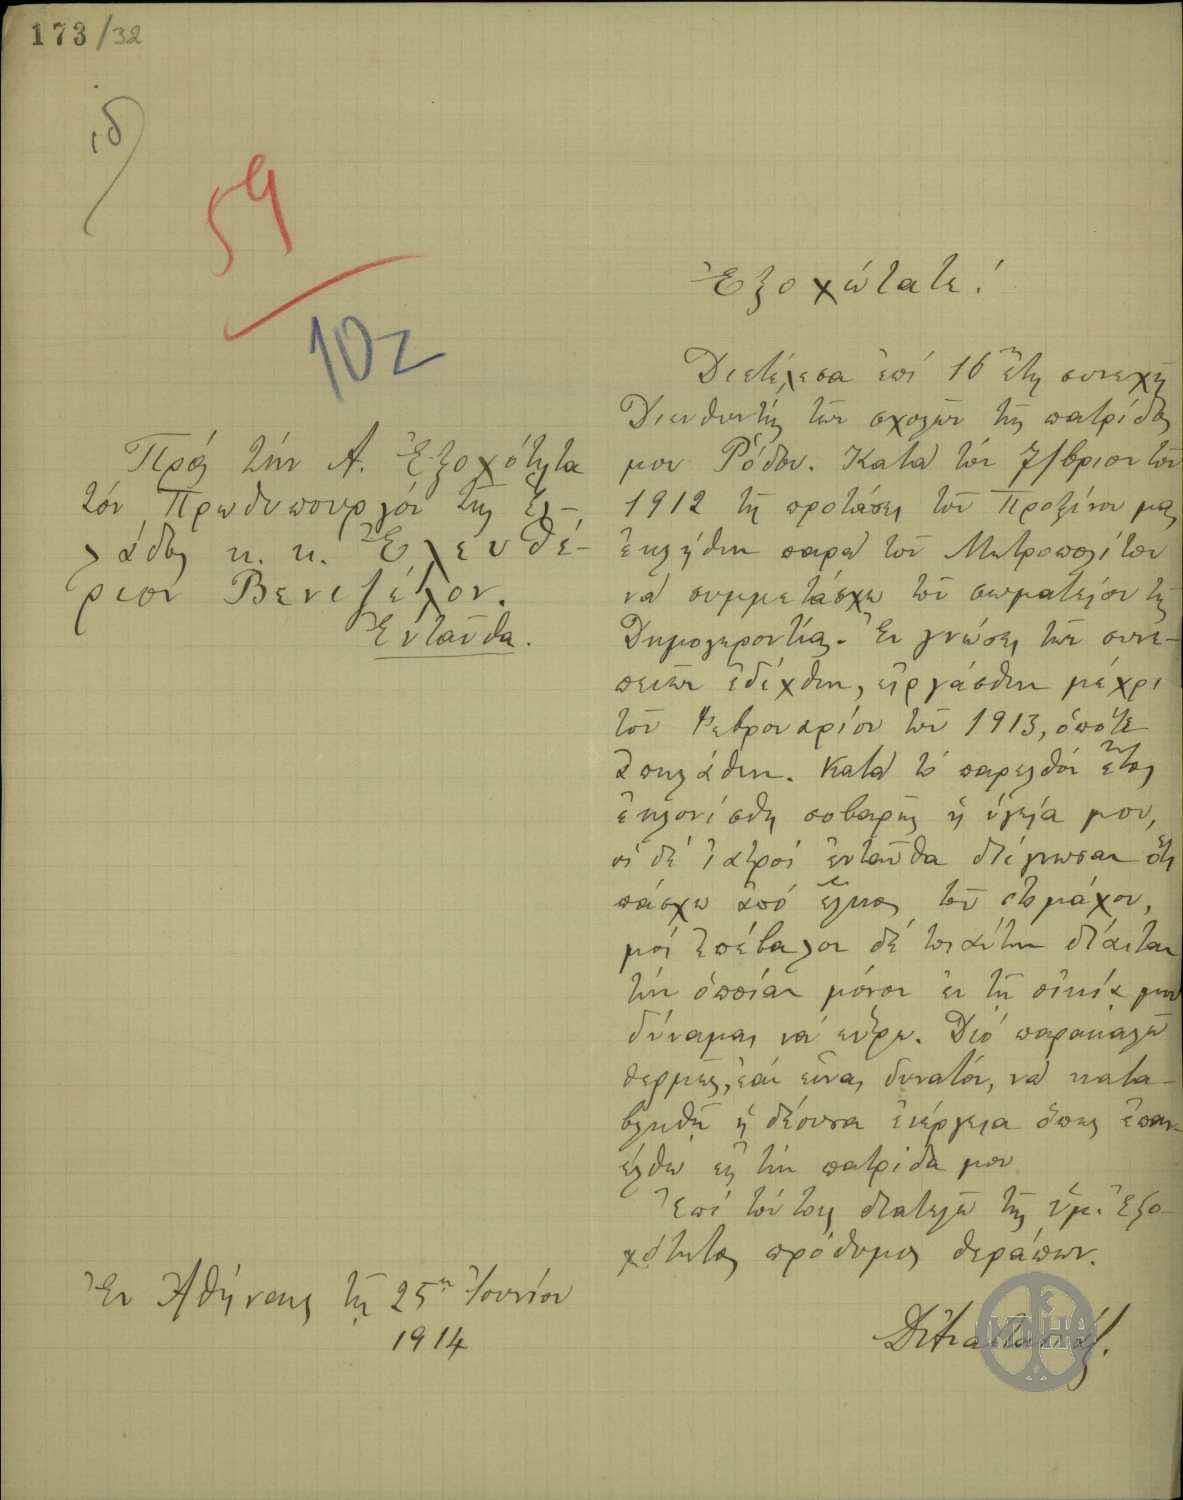 173/32
ιδ
59
102
Πρὸς τὴν Α. Ἐξοχότητα
τὸν Πρωθυπουργὸν τῆς Ἑλ-
λάδος κ. κ. Ἐλευθέ-
ριον Βενιζέλον.
Ἐνταῦθα.
Ἐξοχώτατε!
Διετέλεσα ἐπὶ 16 ἔτη συνεχῆ
Διευθυντὴς τῶν σχολῶν τῆς πατρίδος
μου Ρόδου. Κατὰ τὸν 7/βριον τοῦ
1912 τῇ προτάσει τοῦ Προξένου μας
ἐκλήθην παρὰ τοῦ Μητροπολίτου
νὰ συμμετάσχω τοῦ σωματείου τῆς
Δημογεροντίας. Ἐν γνώσει τῶν συνε-
πειῶν ἐδέχθην, εἰργάσθην μέχρι
τοῦ Φεβρουαρίου τοῦ 1913, ὁπότε
ἀπηλάθην. Κατὰ τὸ παρελθὸν ἔτος
ἐκλονίσθη σοβαρῶς ἡ ὑγεία μου,
οἱ δὲ ἰατροὶ ἐνταῦθα διέγνωσαν ὅτι
πάσχω ἀπὸ ἕλκος τοῦ στομάχου,
μοὶ ἐπέβαλον δὲ τοιαύτην δίαιταν
τὴν ὁποίαν μόνον ἐν τῇ οἰκίᾳ μου
δύναμαι νὰ εὕρω. Διὸ παρακαλῶ
θερμῶς, ἐὰν εἶναι δυνατόν, νὰ κατα-
βληθῇ ἡ δέουσα ἐνέργεια ὅπως ἐπαν-
έλθω εἰς τὴν πατρίδα μου
Ἐπὶ τούτοις διατελῶ τῆς ὑμ. Ἐξο-
χότητος πρόθυμος θεράπων.
Ἐν Ἀθήναις τῇ 25ῃ Ἰουνίου
1914